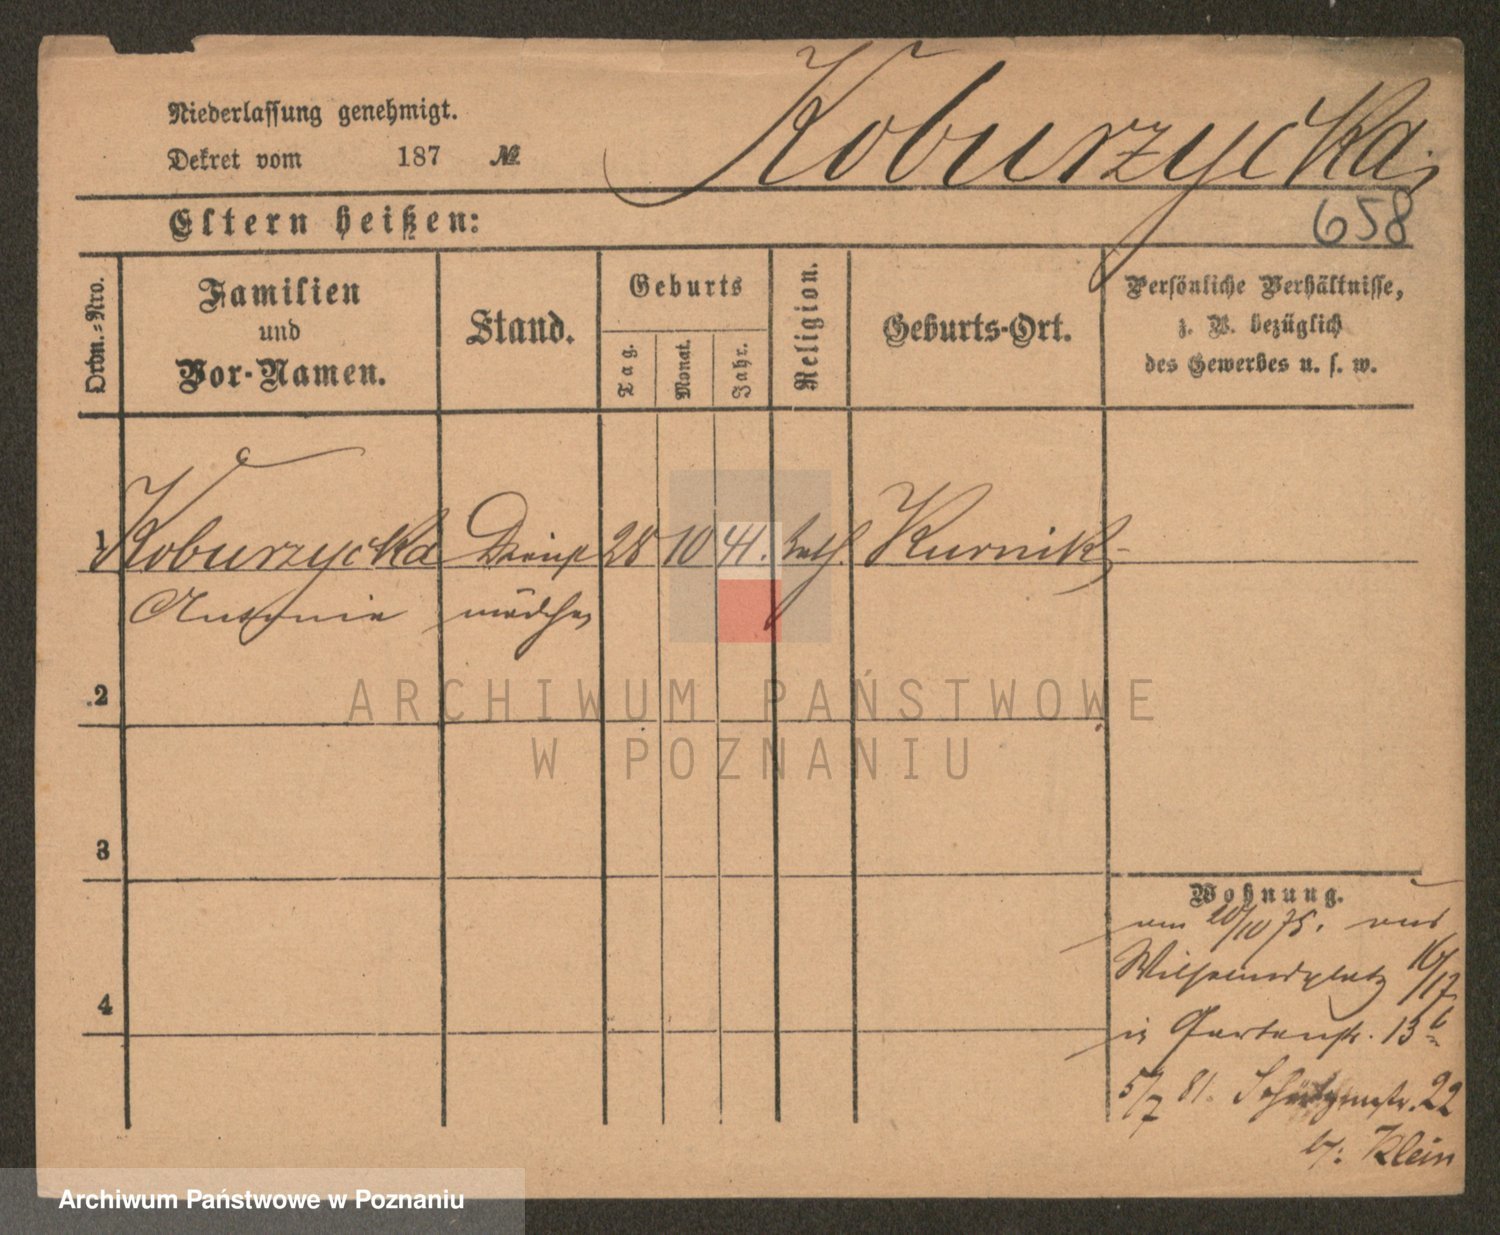 Niederlassung genehmigt.
Dekret vom 187 №
Koburzycka,
Eltern heißen:
658
Ordn.-Nro.
Familien
und
Vor-Namen.
Stand.
Geburts
Tag.
Monat.
Jahr.
Religion.
Geburts-Ort.
Persönliche Verhältnisse,
z. B. bezüglich
des Gewerbes u. s. w.
1 Koburzycka Dienst 28 10 41. kath. Kurnik
Antonie mädchen
2
ARCHIWUM PAŃSTWOWE
W POZNANIU
3
Wohnung.
am 20/10 75. aus
Wilhelmsplatz 16/17
in Gartenstr. 13b
4
5/7 81. Schützenstr. 22
b/: Klein
Archiwum Państwowe w Poznaniu